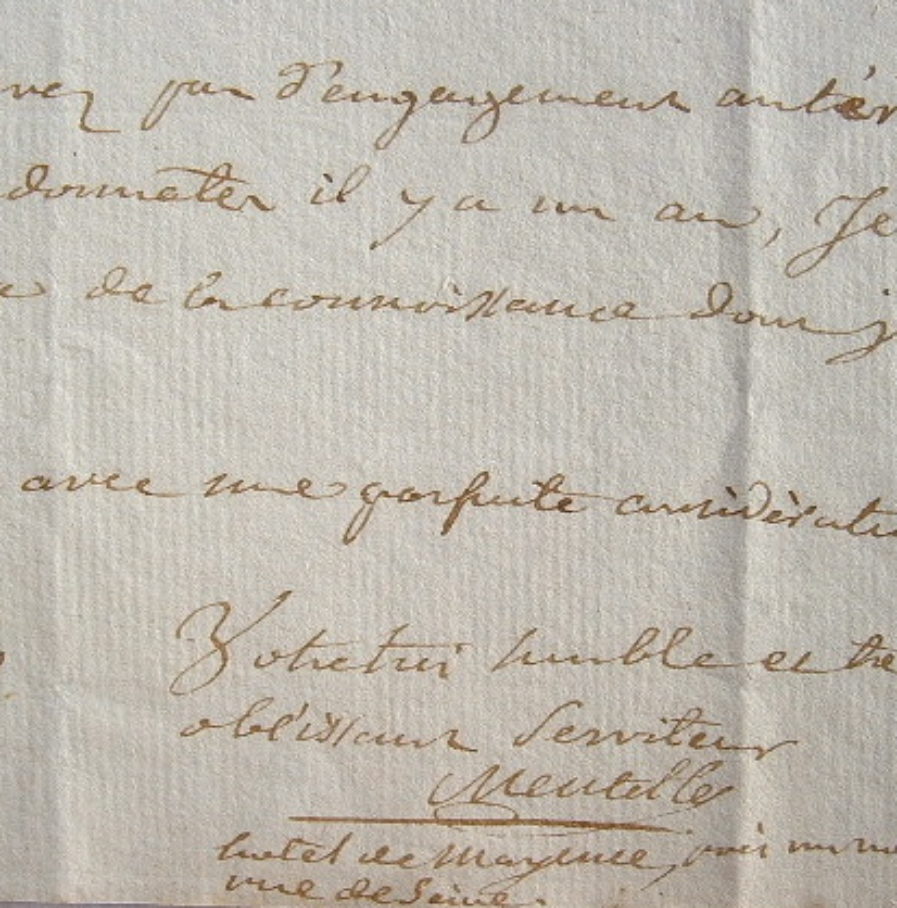 vez pas d'engagement antér
il y a un an, Je
de la connoissance dont j
avec une parfaite considératio
Votre tres humble et tre
obéissant Serviteur
Mentelle
hotel de Mayence,
rue de Seine.